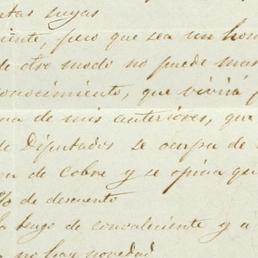 tas suyas
iente, pero que sea un hom
de otro modo no puede mas
onocimiento, que vivirá p
na de mis anteriores, que
de Diputados se ocupa de
da de Cobre y se opina qu
% de descuento
la sigo de convaleciente y a
no hay novedad